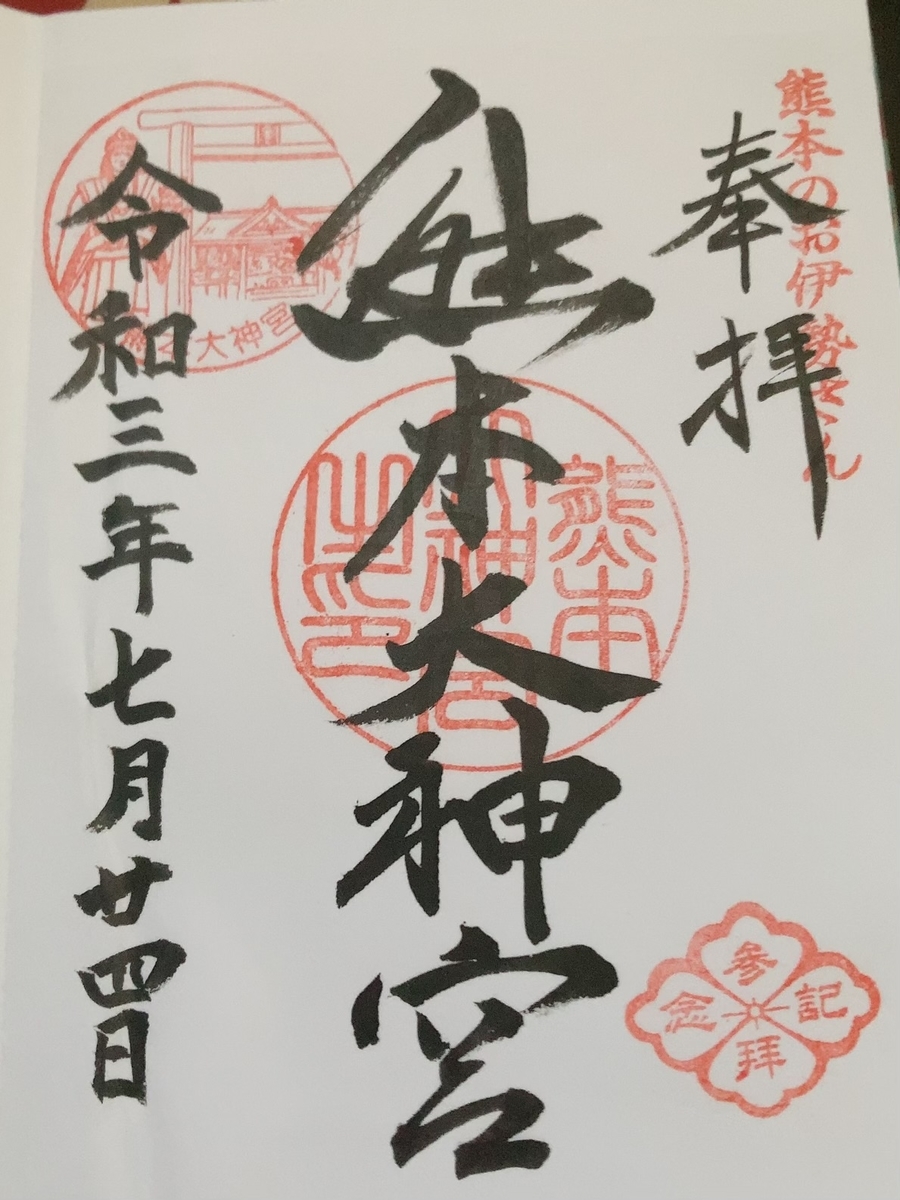 熊本のお伊勢さん
奉拝
参拝記念
熊本大神宮
熊本
大神宮
之印
熊本大神宮
令和三年七月廿四日